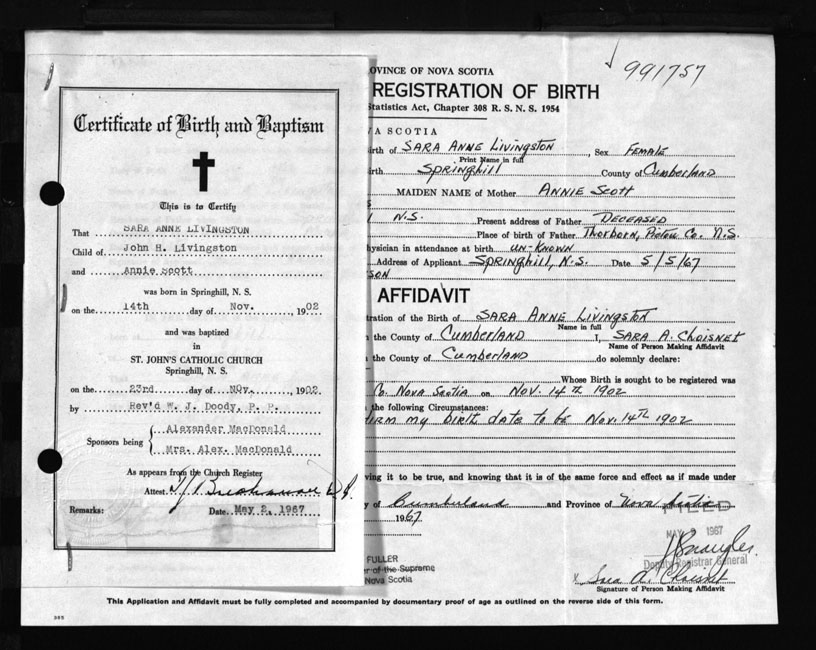 Certificate of Birth and Baptism
This is to Certify
That SARA ANNE LIVINGSTON
Child of John H. Livingston
and Annie Scott
was born in Springhill, N. S.
on the 14th day of Nov. , 1902
and was baptized
in
ST. JOHN'S CATHOLIC CHURCH
Springhill, N. S.
on the 23rd day of NOv. , 1902
by Rev'd W. J. Doody, P. P.
Sponsors being Alexander MacDonald
Mrs. Alex. MacDonald
As appears from the Church Register
Attest.
Remarks: Date May 2, 1967
991757
OVINCE OF NOVA SCOTIA
REGISTRATION OF BIRTH
Statistics Act, Chapter 308 R. S. N. S. 1954
VA SCOTIA
irth of SARA ANNE LIVINGSTON , Sex FEMALE
Print Name in full
irth SPRINGHILL County of CUMBERLAND
MAIDEN NAME of Mother ANNIE SCOTT
N.S. Present address of Father DECEASED
Place of birth of Father Thorborn, Pictou Co. N.S.
hysician in attendance at birth UN-KNOWN
Address of Applicant SPRINGHILL, N.S. Date 5/5/67
SON
AFFIDAVIT
tration of the Birth of SARA ANNE LIVINGSTON
Name in full
n the County of CUMBERLAND I, SARA A. CHOISNET
Name of Person Making Affidavit
the County of CUMBERLAND do solemnly declare:
Whose Birth is sought to be registered was
Co. NOVA SCOTIA on NOV. 14TH 1902
the following Circumstances:
IRM my birth date to be Nov. 14TH 1902
ving it to be true, and knowing that it is of the same force and effect as if made under
y of Cumberland and Province of Nova Scotia
1967
FILED
MAY 9 1967
Deputy Registrar General
FULLER
er of the Supreme
Nova Scotia
x Sara A. Choisnet
Signature of Person Making Affidavit
This Application and Affidavit must be fully completed and accompanied by documentary proof of age as outlined on the reverse side of this form.